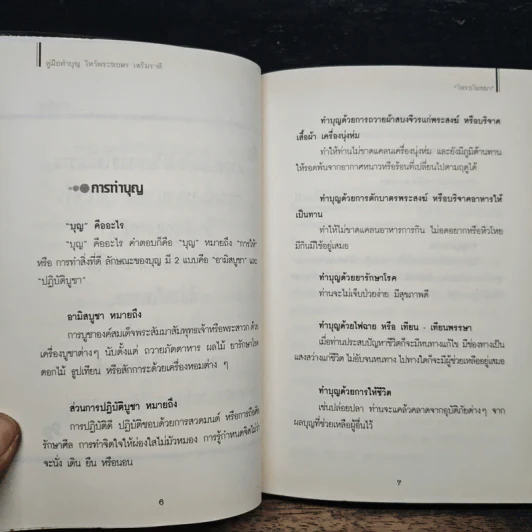 คู่มือทำบุญ ไหว้พระขอพร เสริมราศี
การทำบุญ
"บุญ" คืออะไร
"บุญ" คืออะไร คำตอบก็คือ "บุญ" หมายถึง "การให้"
หรือ การทำสิ่งที่ดี ลักษณะของบุญ มี 2 แบบคือ "อามิสบูชา" และ
"ปฏิบัติบูชา"
อามิสบูชา หมายถึง
การบูชาองค์สมเด็จพระสัมมาสัมพุทธเจ้าหรือพระสาวก ด้วย
เครื่องบูชาต่างๆ นับตั้งแต่ ถวายภัตตาหาร ผลไม้ ยารักษาโรค
ดอกไม้ ธูปเทียน หรือสักการะด้วยเครื่องหอมต่าง ๆ
ส่วนการปฏิบัติบูชา หมายถึง
การปฏิบัติดี ปฏิบัติชอบด้วยการสวดมนต์ หรือการถือศีล
รักษาศีล การทำจิตใจให้ผ่องใสไม่มัวหมอง การรู้กำหนดจิตไม่ว่า
จะนั่ง เดิน ยืน หรือนอน
6
ทำบุญด้วยการถวายผ้าสบงจีวรแก่พระสงฆ์ หรือบริจาค
เสื้อผ้า เครื่องนุ่งห่ม
ทำให้ท่านไม่ขาดแคลนเครื่องนุ่งห่ม และยังมีภูมิต้านทาน
ให้รอดพ้นจากอากาศหนาวหรือร้อนที่เปลี่ยนไปตามฤดูได้
ทำบุญด้วยการตักบาตรพระสงฆ์ หรือบริจาคอาหารให้
เป็นทาน
ทำให้ไม่ขาดแคลนอาหารการกิน ไม่อดอยากหรือหิวโหย
มีกินมีใช้อยู่เสมอ
ทำบุญด้วยยารักษาโรค
ท่านจะไม่เจ็บป่วยง่าย มีสุขภาพดี
ทำบุญด้วยไฟฉาย หรือ เทียน - เทียนพรรษา
เมื่อท่านประสบปัญหาชีวิตก็จะมีหนทางแก้ไข มีช่องทางเป็น
แสงสว่างแก่ชีวิต ไม่อับจนหนทาง ไปทางใดก็จะมีผู้ช่วยเหลืออยู่เสมอ
ทำบุญด้วยการให้ชีวิต
เช่นปล่อยปลา ท่านจะแคล้วคลาดจากอุบัติภัยต่างๆ จาก
ผลบุญที่ช่วยเหลือผู้อื่นไว้
7